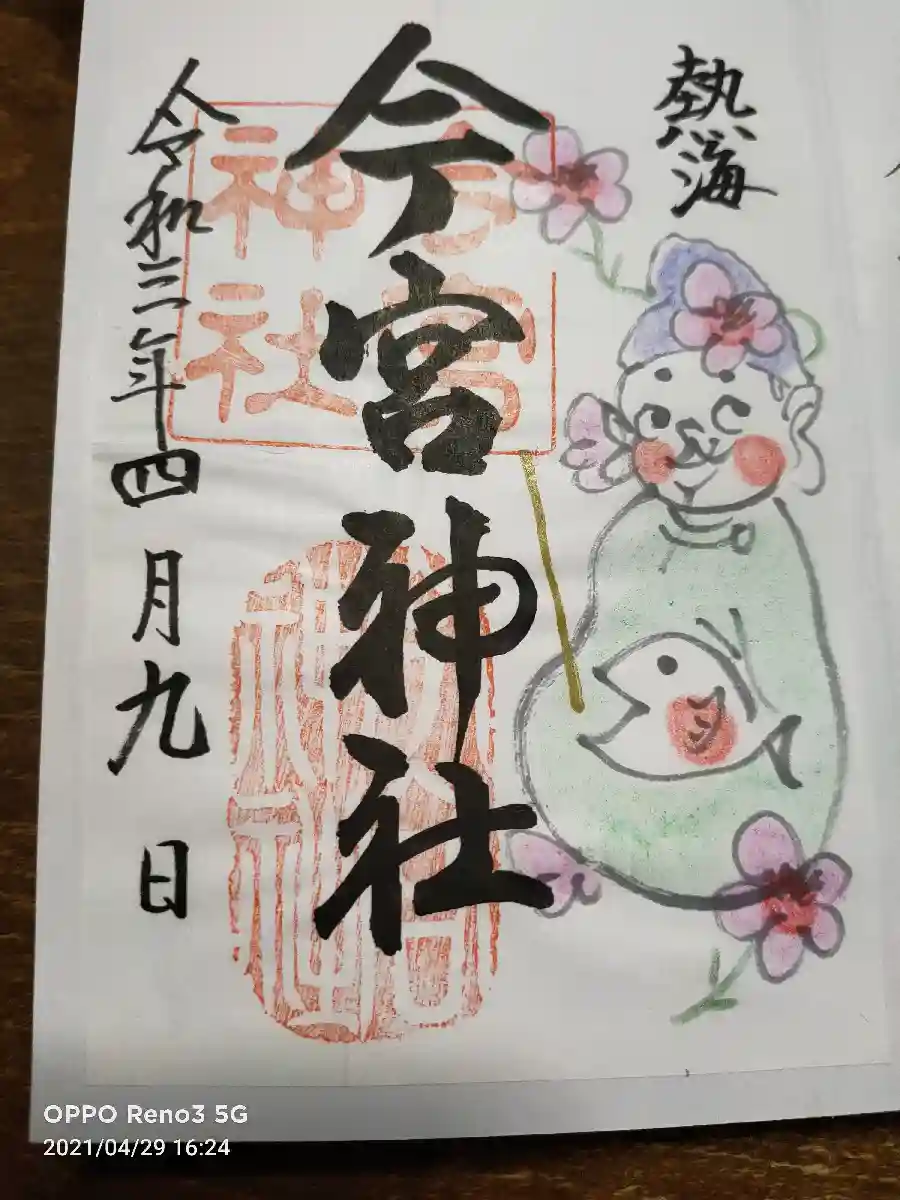 熱海
今宮神社
今宮
神社
令和三年四月九日
OPPO Reno3 5G
2021/04/29 16:24